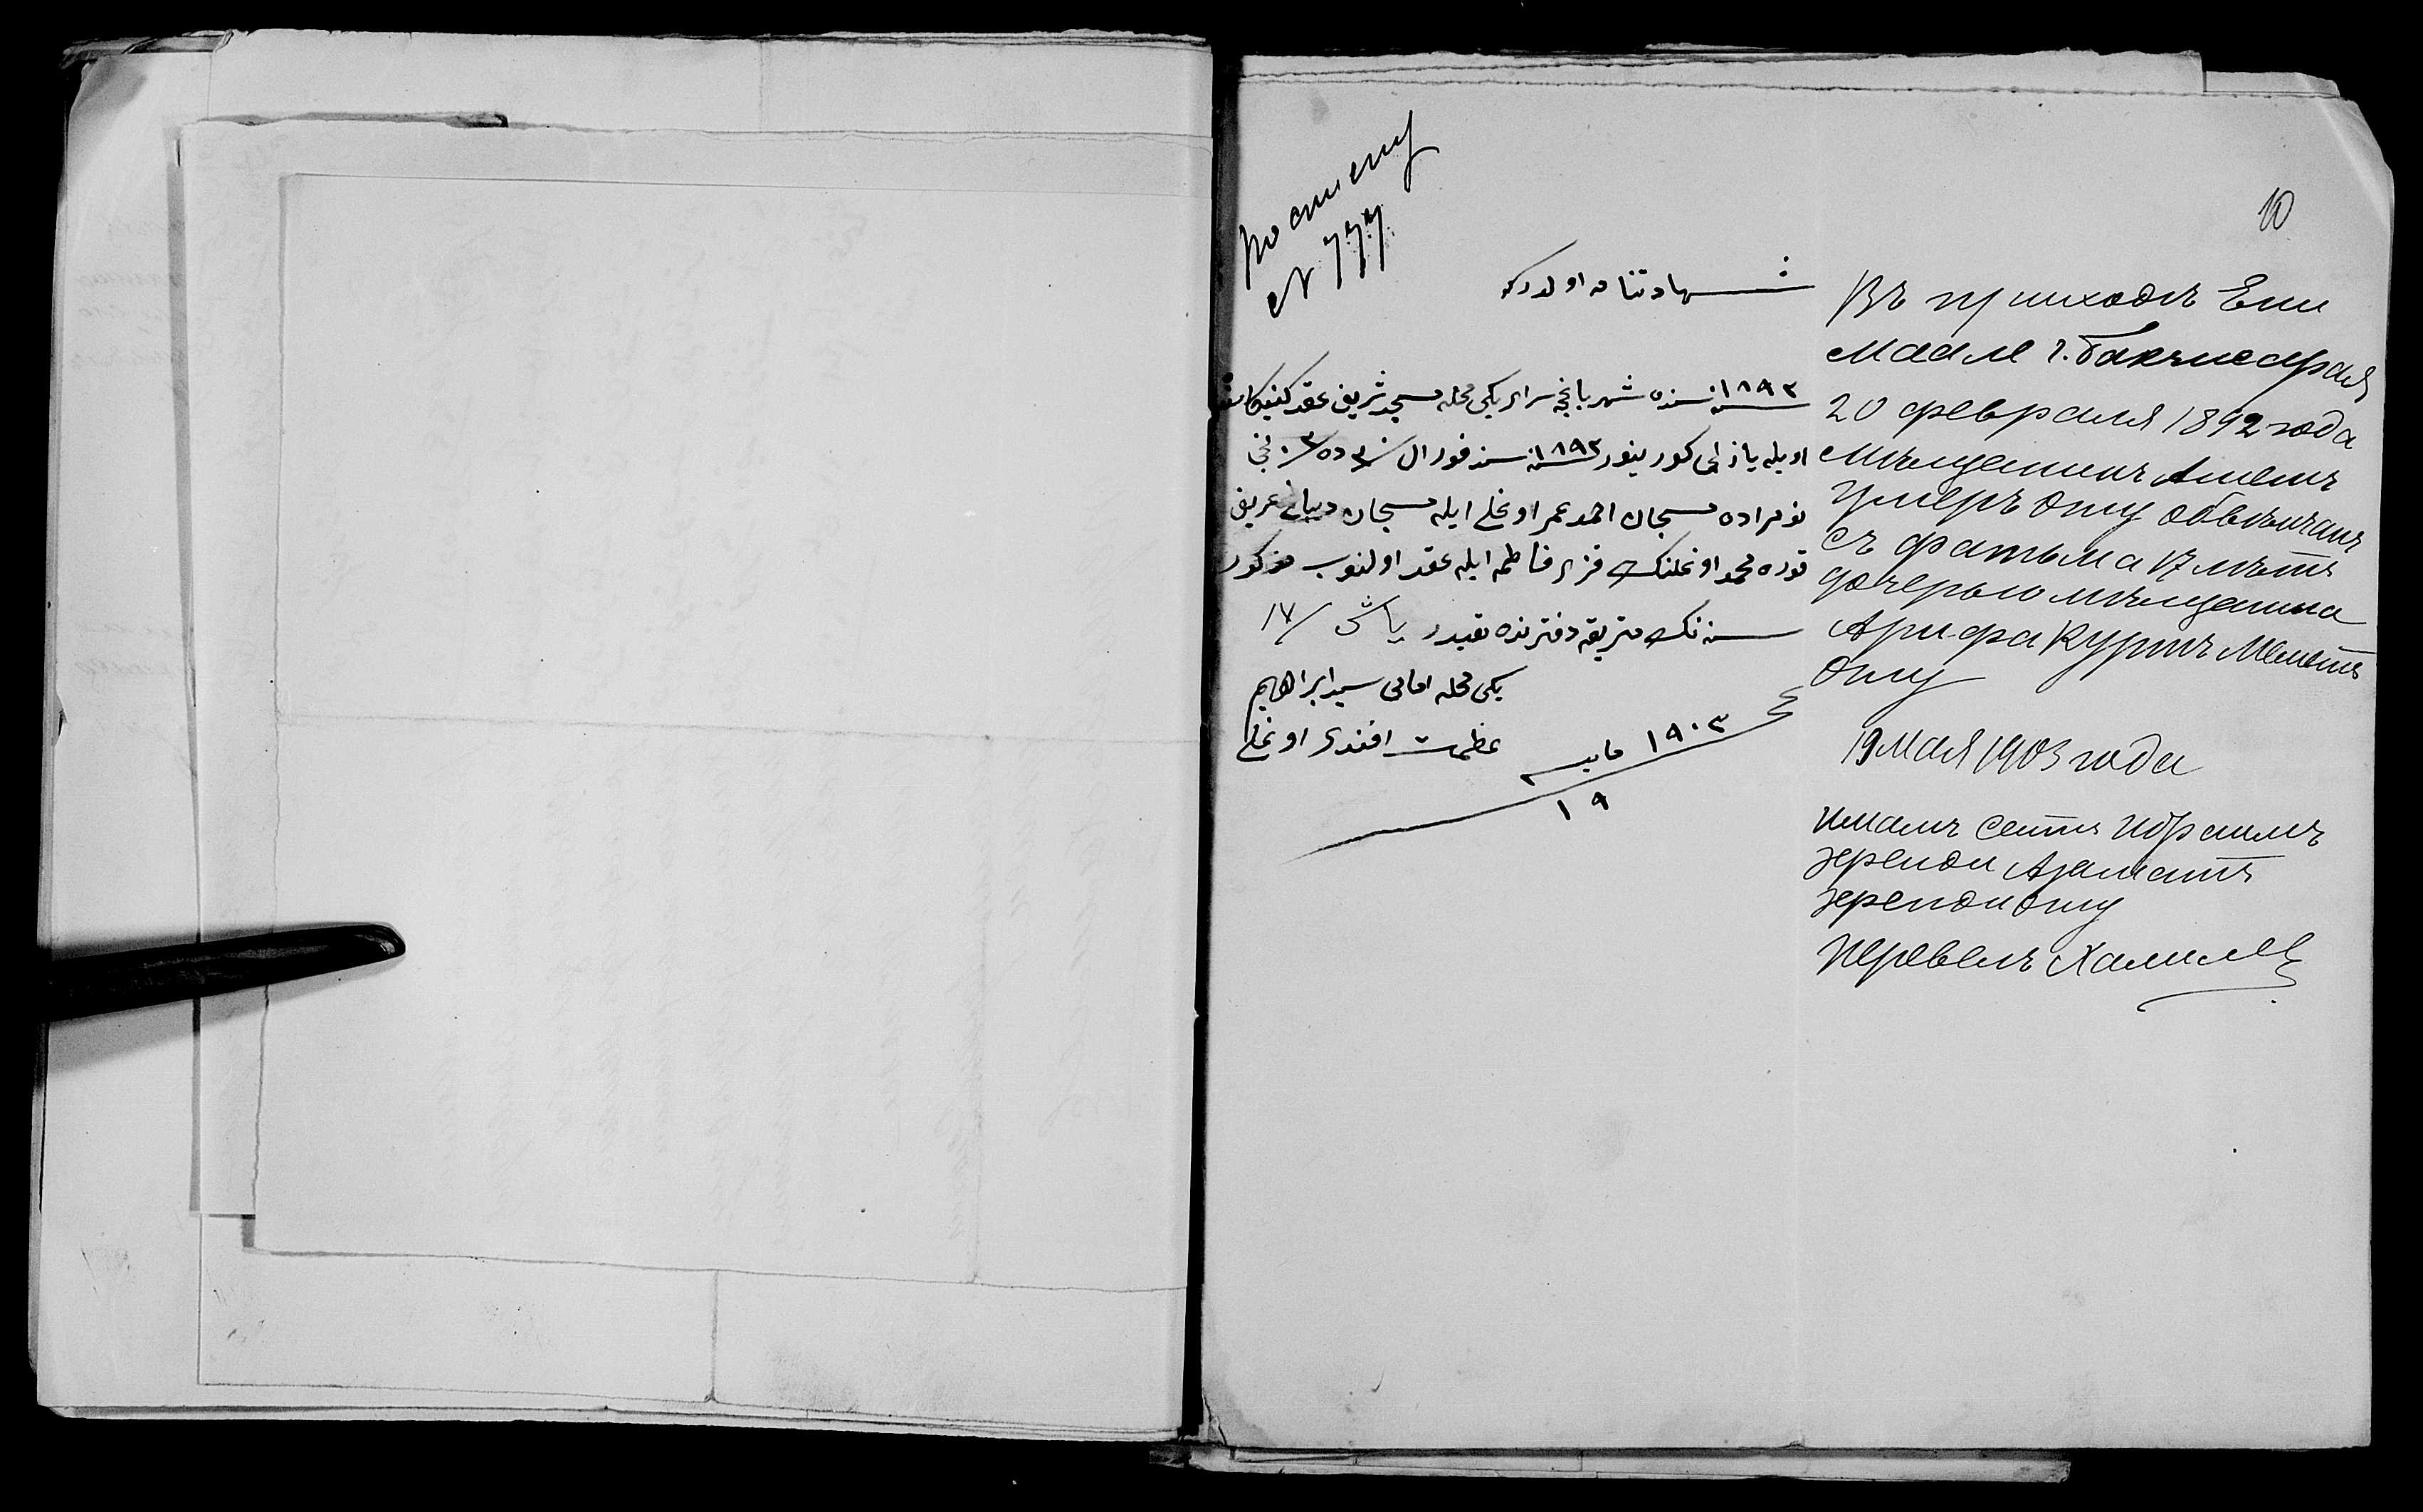 10
по описи
№ 777
شهادتنامه اولدركه
١٨٩٢ نسنه سنده شهر باغچه سراى يكى محله مسجد شريف عقد
اويله يازلمى كورينور ١٨٩٢ نسنه سنه فورال ده نجى
مسچان احمد عمر اوغلى ايله مسچان عريف
قورده محمد اوغلنك قزى فاطمه ايله عقد اولنوب مذكور
سنه نك متريقه دفترنده مقيددر ياش ١٧
يكى محله امامى سيد ابراهيم
عظمت افندى اوغلى
١٩٠٣ مايسه
١٩
Въ приходѣ Ени
Маале г. Бахчисарая
20 февраля 1892 года
мѣщанинъ Аметъ
Умеръ Оглу обвѣнчанъ
съ Фатьма 17 лѣтъ
дочерью мѣщанина
Арифа Куртъ Меметъ
Оглу
19 Мая 1903 года
Имамъ Сеитъ Ибраимъ
эфенди Азаматъ
эфенди Оглу
Перевелъ Халилев